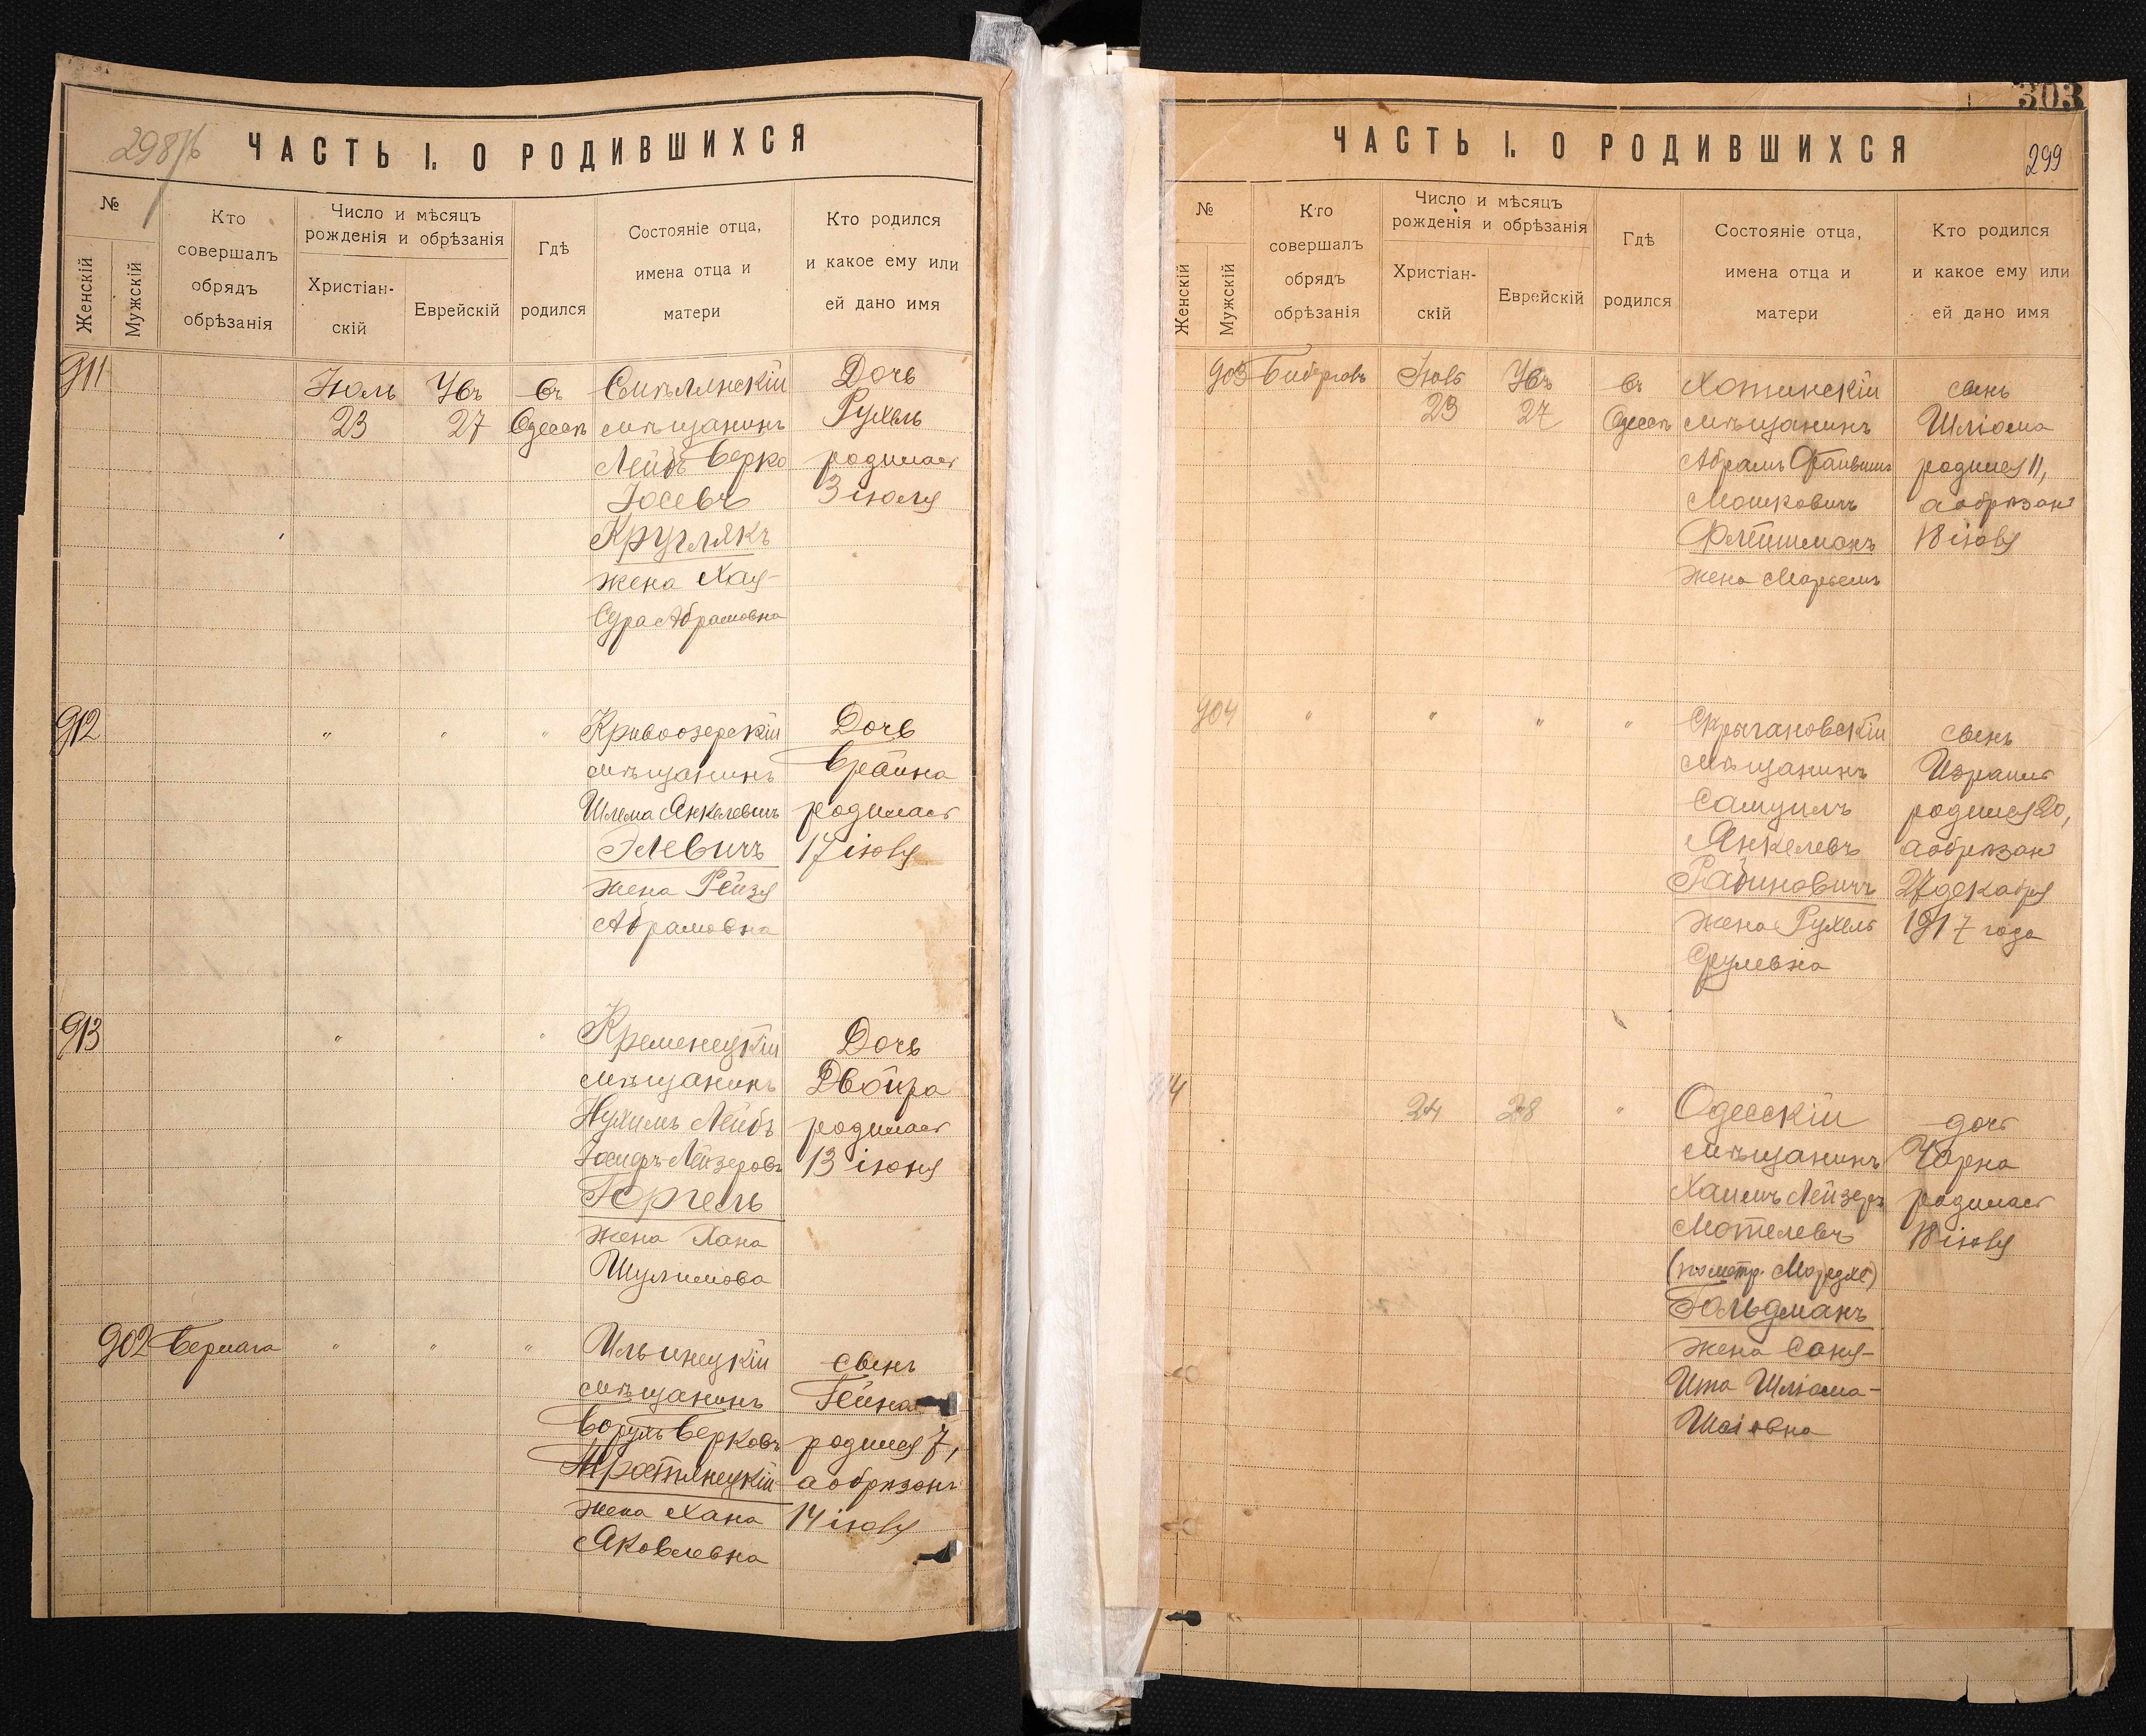 298/б
ЧАСТЬ I. О РОДИВШИХСЯ
№
Женскій
Мужскій
Кто
совершалъ
обрядъ
обрѣзанія
Число и мѣсяцъ
рожденія и обрѣзанія
Христіан-
скій
Еврейскій
Гдѣ
родился
Состояніе отца,
имена отца и
матери
Кто родился
и какое ему или
ей дано имя
911
Іюль
23
27
въ
Одессѣ
Смѣлянскій
мѣщанинъ
Лейбъ Берко
Іосевъ
Круглякъ
жена Хая-
Сура Абрамовна
Дочь
Рухель
родилась
3 іюля
912
"
"
"
Кривоозерскій
мѣщанинъ
Шлема Янкелевичъ
Элевичъ
жена Рейзя
Абрамовна
Дочь
Брайна
родилась
17 іюля
913
"
"
"
Кременецкій
мѣщанинъ
Нухимъ Лейбъ
Іосифъ-Лейзеровъ
Гергель
жена Хана
Шулимова
Дочь
Двойра
родилась
13 іюня
902
"
"
"
Ильинецкій
мѣщанинъ
Борухъ Берковъ
Тростянецкій
жена Хана
Яковлевна
сынъ
родился 7,
а обрѣзанъ
14 іюля
303
299
ЧАСТЬ I. О РОДИВШИХСЯ
№
Женскій
Мужскій
Кто
совершалъ
обрядъ
обрѣзанія
Число и мѣсяцъ
рожденія и обрѣзанія
Христіан-
скій
Еврейскій
Гдѣ
родился
Состояніе отца,
имена отца и
матери
Кто родился
и какое ему или
ей дано имя
903
Іюль
23
27
въ
Одессѣ
Хотинскій
мѣщанинъ
Абрамъ Фаивишъ
Мошковичъ
Флейшманъ
жена Марьемъ
сынъ
Шліома
родился 11,
а обрѣзанъ
18 іюля
904
"
"
"
"
мѣщанинъ
Самуилъ
Янкелевъ
Рабиновичъ
жена Рухель
Срулевна
сынъ
Израиль
родился 20,
а обрѣзанъ
27 декабря
1917 года
914
24
28
"
Одесскій
мѣщанинъ
Хаимъ Лейзеръ
Мотелевъ
(по метр. Мордхе)
Гольдманъ
жена Соня-
Ита Шліома-
Шаіовна
дочь
Чарна
родилась
18 іюля